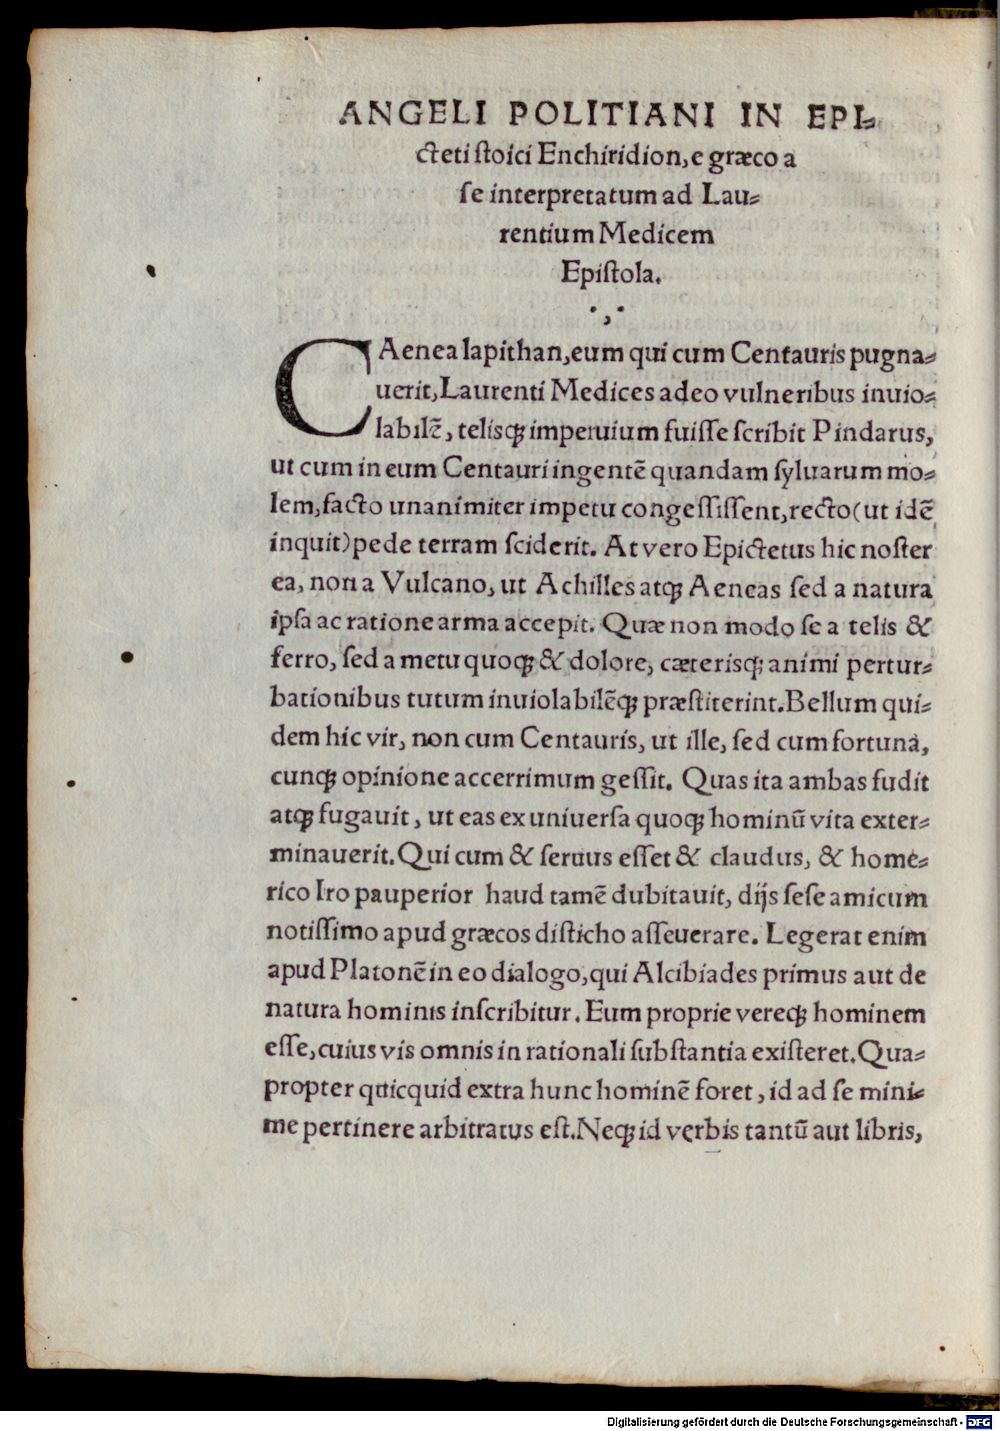 ANGELI POLITIANI IN EPI⸗
cteti ſtoici Enchiridion, e græco a
ſe interpretatum ad Lau⸗
rentium Medicem
Epiſtola.
CAenea lapithan, eum qui cum Centauris pugna⸗
uerit, Laurenti Medices adeo vulneribus inuio⸗
labilẽ, telisqꝫ imperuium fuiſſe ſcribit Pindarus,
ut cum in eum Centauri ingentẽ quandam ſyluarum mo⸗
lem, facto unanimiter impetu congeſſiſſent, recto (ut idẽ
inquit) pede terram ſciderit. At vero Epictetus hic noſter
ea, non a Vulcano, ut Achilles atqꝫ Aeneas ſed a natura
ipſa ac ratione arma accepit. Quæ non modo ſe a telis &
ferro, ſed a metu quoqꝫ & dolore, cæterisqꝫ animi pertur⸗
bationibus tutum inuiolabilẽqꝫ præſtiterint. Bellum qui⸗
dem hic vir, non cum Centauris, ut ille, ſed cum fortuna,
cunqꝫ opinione accerrimum geſſit. Quas ita ambas fudit
atqꝫ fugauit, ut eas ex uniuerſa quoqꝫ hominũ vita exter⸗
minauerit. Qui cum & ſeruus eſſet & claudus, & home⸗
rico Iro pauperior haud tamẽ dubitauit, dijs ſeſe amicum
notiſſimo apud græcos diſticho aſſeuerare. Legerat enim
apud Platonẽ in eo dialogo, qui Alcibiades primus aut de
natura hominis inſcribitur. Eum proprie vereqꝫ hominem
eſſe, cuius vis omnis in rationali ſubſtantia exiſteret. Qua⸗
propter quicquid extra hunc hominẽ foret, id ad ſe mini⸗
me pertinere arbitratus eſt. Neqꝫ id verbis tantũ aut libris,
Digitalisierung gefördert durch die Deutsche Forschungsgemeinschaft - DFG